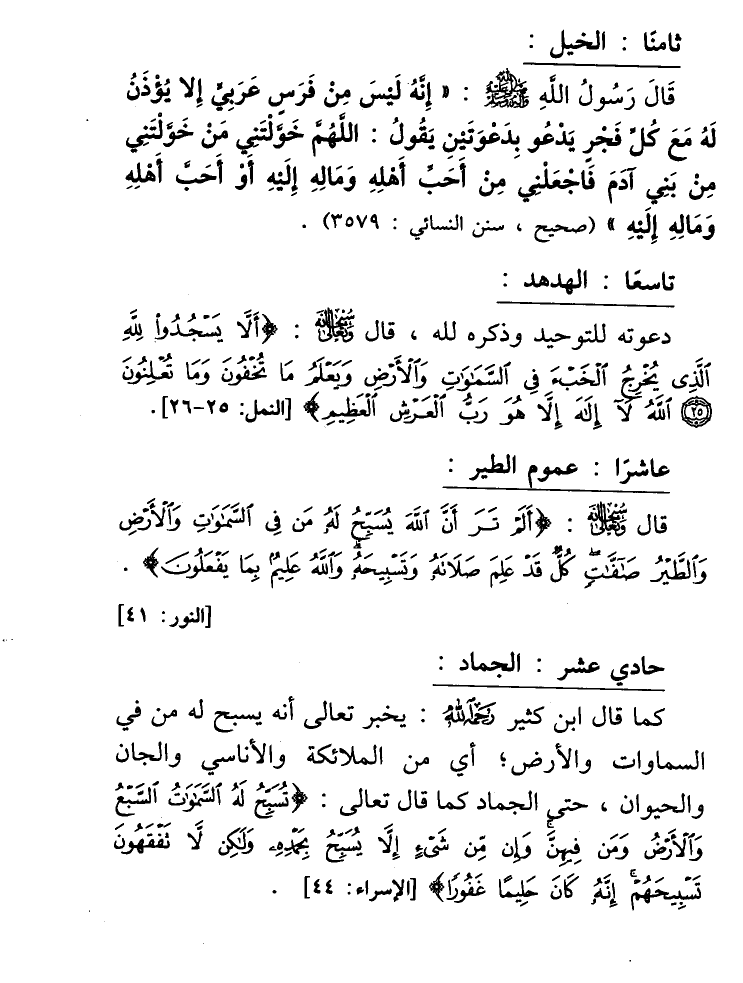 ثامنًا : الخيل :
قَالَ رَسُولُ اللَّهِ ﷺ : « إِنَّهُ لَيْسَ مِنْ فَرَسٍ عَرَبِيٍّ إِلا يُؤْذَنُ
لَهُ مَعَ كُلِّ فَجْرٍ يَدْعُو بِدَعْوَتَيْنِ يَقُولُ : اللَّهُمَّ خَوَّلْتَنِي مَنْ خَوَّلْتَنِي
مِنْ بَنِي آدَمَ فَاجْعَلْنِي مِنْ أَحَبِّ أَهْلِهِ وَمَالِهِ إِلَيْهِ أَوْ أَحَبَّ أَهْلِهِ
وَمَالِهِ إِلَيْهِ » (صحيح ، سنن النسائي : ٣٥٧٩) .
تاسعًا : الهدهد :
دعوته للتوحيد وذكره لله ، قال سُبْحَانَهُ وَتَعَالَى : ﴿أَلَّا يَسْجُدُوا۟ لِلَّهِ
ٱلَّذِى يُخْرِجُ ٱلْخَبْءَ فِى ٱلسَّمَٰوَٰتِ وَٱلْأَرْضِ وَيَعْلَمُ مَا تُخْفُونَ وَمَا تُعْلِنُونَ
۝٢٥ ٱللَّهُ لَآ إِلَٰهَ إِلَّا هُوَ رَبُّ ٱلْعَرْشِ ٱلْعَظِيمِ﴾ [النمل: ٢٥-٢٦].
عاشرًا : عموم الطير :
قال سُبْحَانَهُ وَتَعَالَى : ﴿أَلَمْ تَرَ أَنَّ ٱللَّهَ يُسَبِّحُ لَهُۥ مَن فِى ٱلسَّمَٰوَٰتِ وَٱلْأَرْضِ
وَٱلطَّيْرُ صَٰٓفَّٰتٍ ۖ كُلٌّ قَدْ عَلِمَ صَلَاتَهُۥ وَتَسْبِيحَهُۥ ۗ وَٱللَّهُ عَلِيمٌۢ بِمَا يَفْعَلُونَ﴾ .
[النور: ٤١]
حادي عشر : الجماد :
كما قال ابن كثير رَحِمَهُ اللَّهُ : يخبر تعالى أنه يسبح له من في
السماوات والأرض؛ أي من الملائكة والأناسي والجان
والحيوان ، حتى الجماد كما قال تعالى : ﴿تُسَبِّحُ لَهُ ٱلسَّمَٰوَٰتُ ٱلسَّبْعُ
وَٱلْأَرْضُ وَمَن فِيهِنَّ ۚ وَإِن مِّن شَىْءٍ إِلَّا يُسَبِّحُ بِحَمْدِهِۦ وَلَٰكِن لَّا تَفْقَهُونَ
تَسْبِيحَهُمْ ۗ إِنَّهُۥ كَانَ حَلِيمًا غَفُورًا﴾ [الإسراء: ٤٤] .